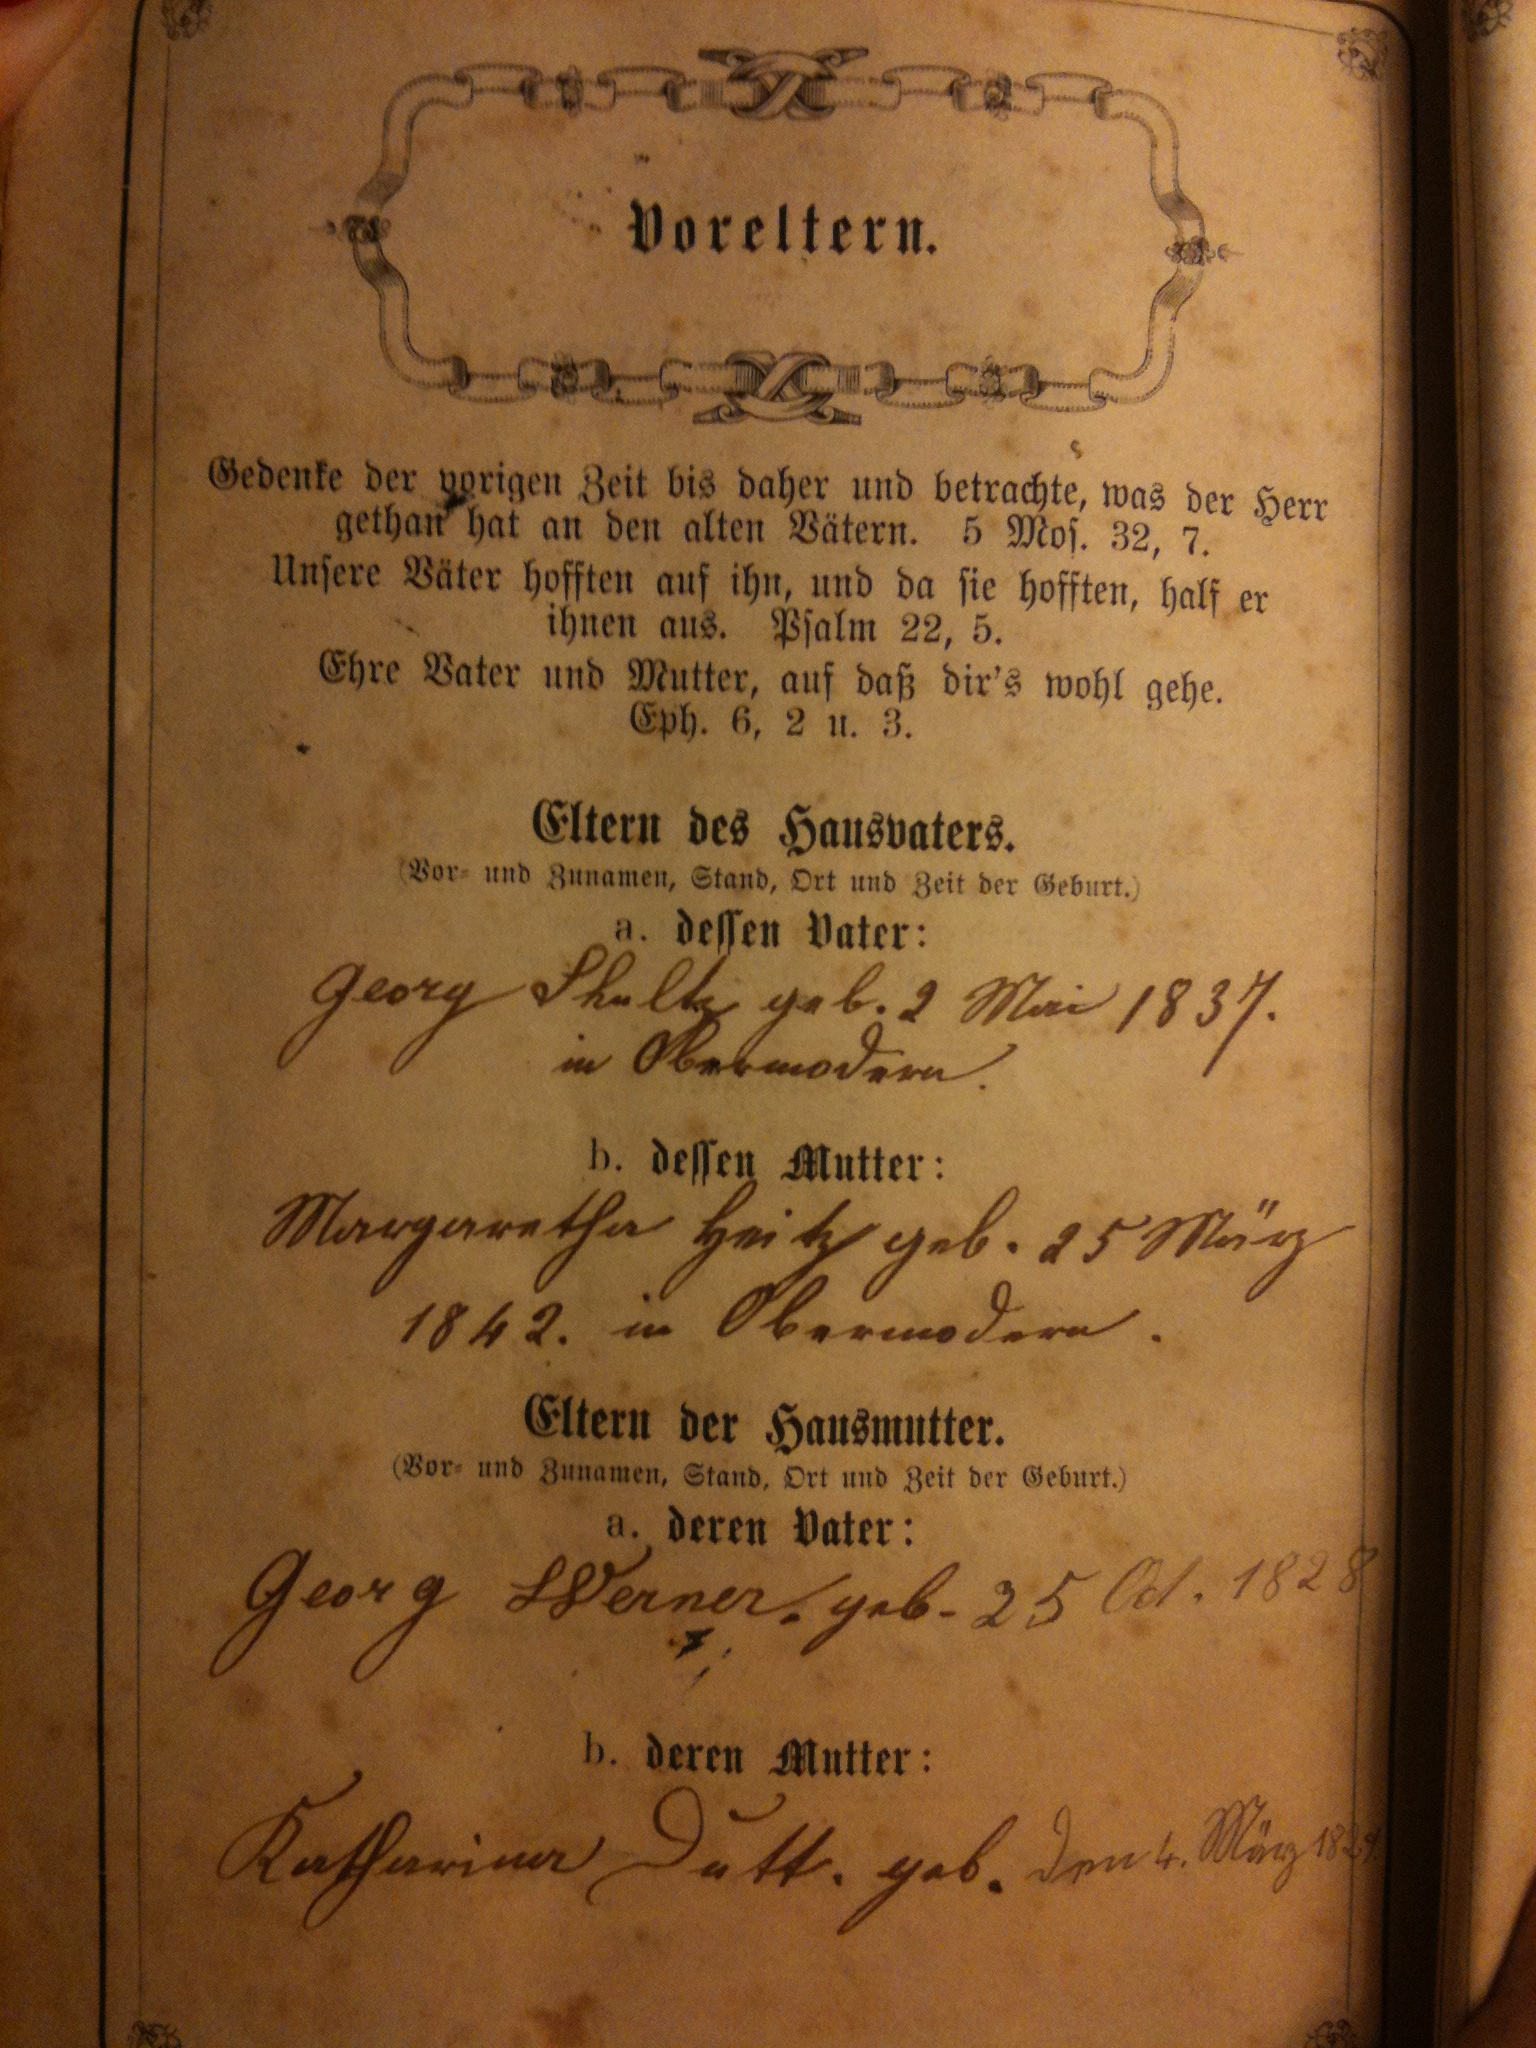 Voreltern.
Gedenke der vorigen Zeit bis daher und betrachte, was der Herr
gethan hat an den alten Vätern. 5 Mos. 32, 7.
Unsere Väter hofften auf ihn, und da sie hofften, half er
ihnen aus. Psalm 22, 5.
Ehre Vater und Mutter, auf daß dir's wohl gehe.
Eph. 6, 2 u. 3.
Eltern des Hausvaters.
(Vor- und Zunamen, Stand, Ort und Zeit der Geburt.)
a. dessen Vater:
Georg Shultz geb. 2 Mai 1837.
in Obermodern.
b. dessen Mutter:
Margaretha Heitz geb. 25 März
1842. in Obermodern.
Eltern der Hausmutter.
(Vor- und Zunamen, Stand, Ort und Zeit der Geburt.)
a. deren Vater:
Georg Werner. geb. 25 Oct. 1828
b. deren Mutter:
Katharina Dutt. geb. den 4. März